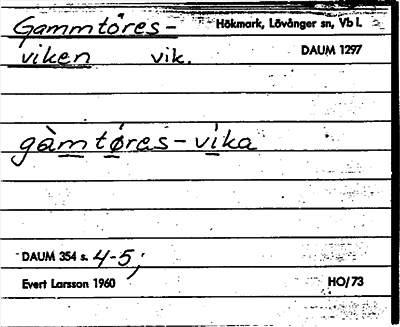 Gammtöres- Hökmark, Lövånger sn, Vb l.
viken vik. DAUM 1297
gàmtø̀res-vika
DAUM 354 s. 4-5;
Evert Larsson 1960 HO/73